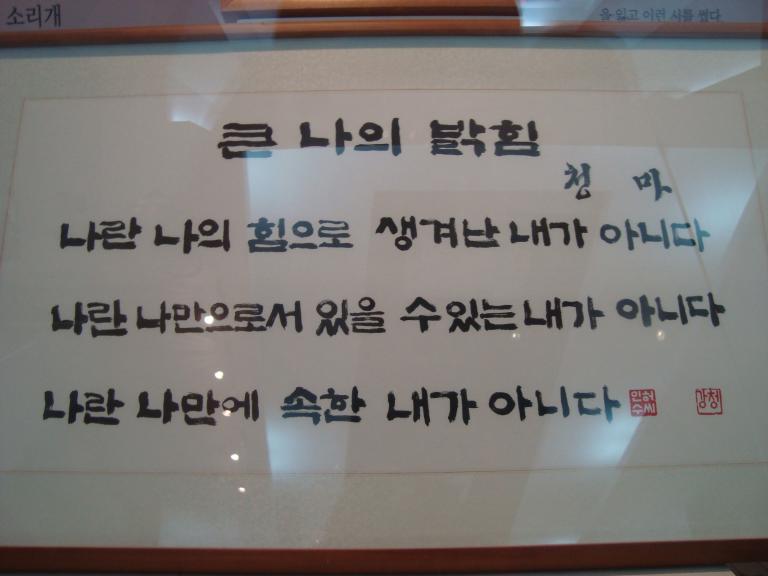 소리개
을 잃고 이런 시를 썼다
큰 나의 밝힘
청 마
나란 나의 힘으로 생겨난 내가 아니다
나란 나만으로서 있을 수 있는 내가 아니다
나란 나만에 속한 내가 아니다
허씨인수
청강